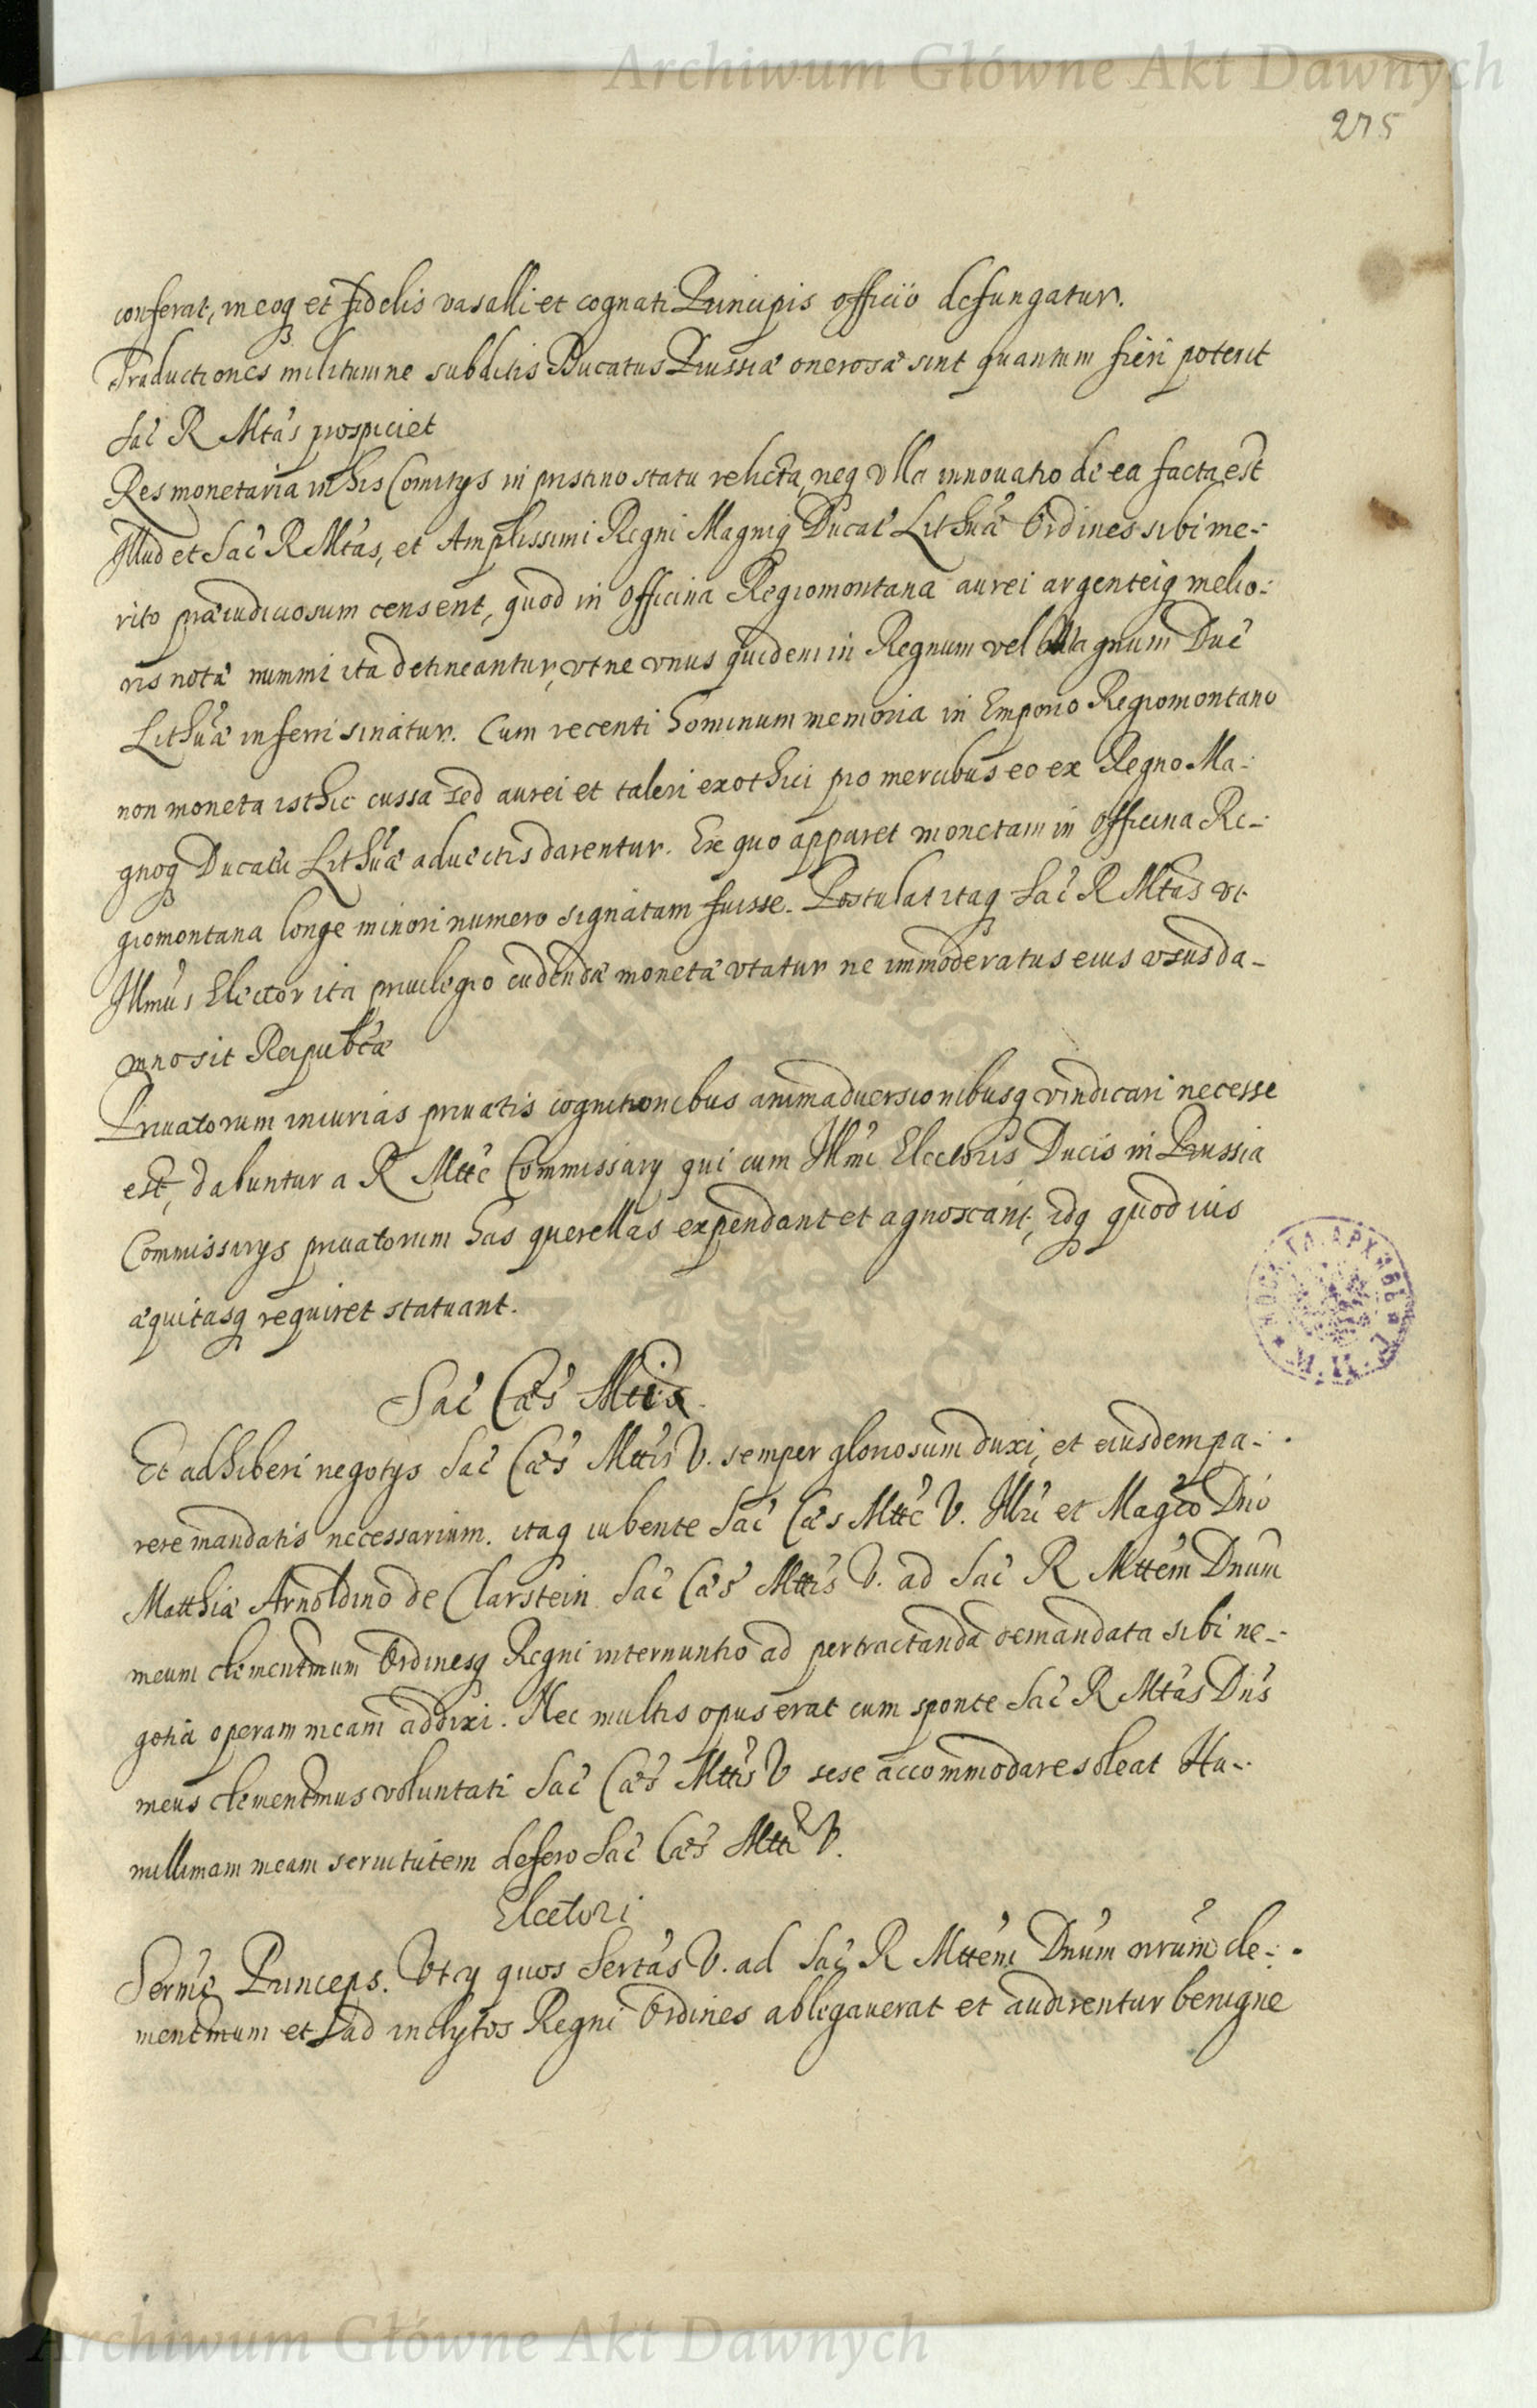 Archiwum Główne Akt Dawnych
275
conferat, in eoq et fidelis vasalli et cognati Principis officio defungatur.
Traductiones militum ne subditis Ducatus Prussiæ onerosæ sint quantum fieri poterit
Sac R Mtas prospiciet
Res monetaria in his Comitys in pristino statu relicta, neq vlla innouatio de ea facta est
Illud et Sac R Mtas, et Amplissimi Regni Magniq Ducat Lithuæ Ordines sibi me-
rito præiudiciosum censent, quod in Officina Regiomontana aurei argenteiq melio-
ris notæ nummi ita detineantur, vt ne vnus quidem in Regnum vel Magnum Duc
Lithuæ inferri sinatur. Cum recenti hominum memoria in Emporio Regiomontano
non moneta isthic cussa sed aurei et taleri exothici pro mercibus eo ex Regno Ma-
gnoq Ducatu Lithuæ aduectis darentur. Ex quo apparet monetam in officina Re-
giomontana longe minori numero signatam fuisse. Postulat itaq Sac R Mtas vt
Illmus Elector ita priuilegio cudendæ monetæ vtatur ne immoderatus eius vsus da-
mno sit Reipublcæ
Priuatorum iniurias priuatis cognitionibus animaduersionibusq vindicari necesse
est, dabuntur a R Mtte Commissary qui cum Illmi Electoris Ducis in Prussia
Commissarys priuatorum has querellas expendant et agnoscant, idq quod ius
æquitasq requiret statuant.
Sac Cæs Mtti
Et adhiberi negotys Sac Cæs Mttis V. semper gloriosum duxi, et eiusdem pa-
rere mandatis necessarium. itaq iubente Sac Cæs Mtte V. Illri et Magco Dno
Matthiæ Arnoldino de Clarstein Sac Cæs Mttis V. ad Sac R Mttem Dnum
meum clementmum Ordinesq Regni internuntio ad pertractanda demandata sibi ne-
gotia operam meam addixi. Nec multis opus erat cum sponte Sac R Mtas Dns
meus clementmus voluntati Sac Cæs Mttis V sese accommodare soleat Hu-
millimam meam seruitutem defero Sac Cæs Mtti V.
Electori
Serme Princeps. Vt y quos Sertas V. ad Sac R Mttem Dnum nrum cle-
mentmum et ad inclytos Regni Ordines ablegauerat et audirentur benigne
Archiwum Główne Akt Dawnych